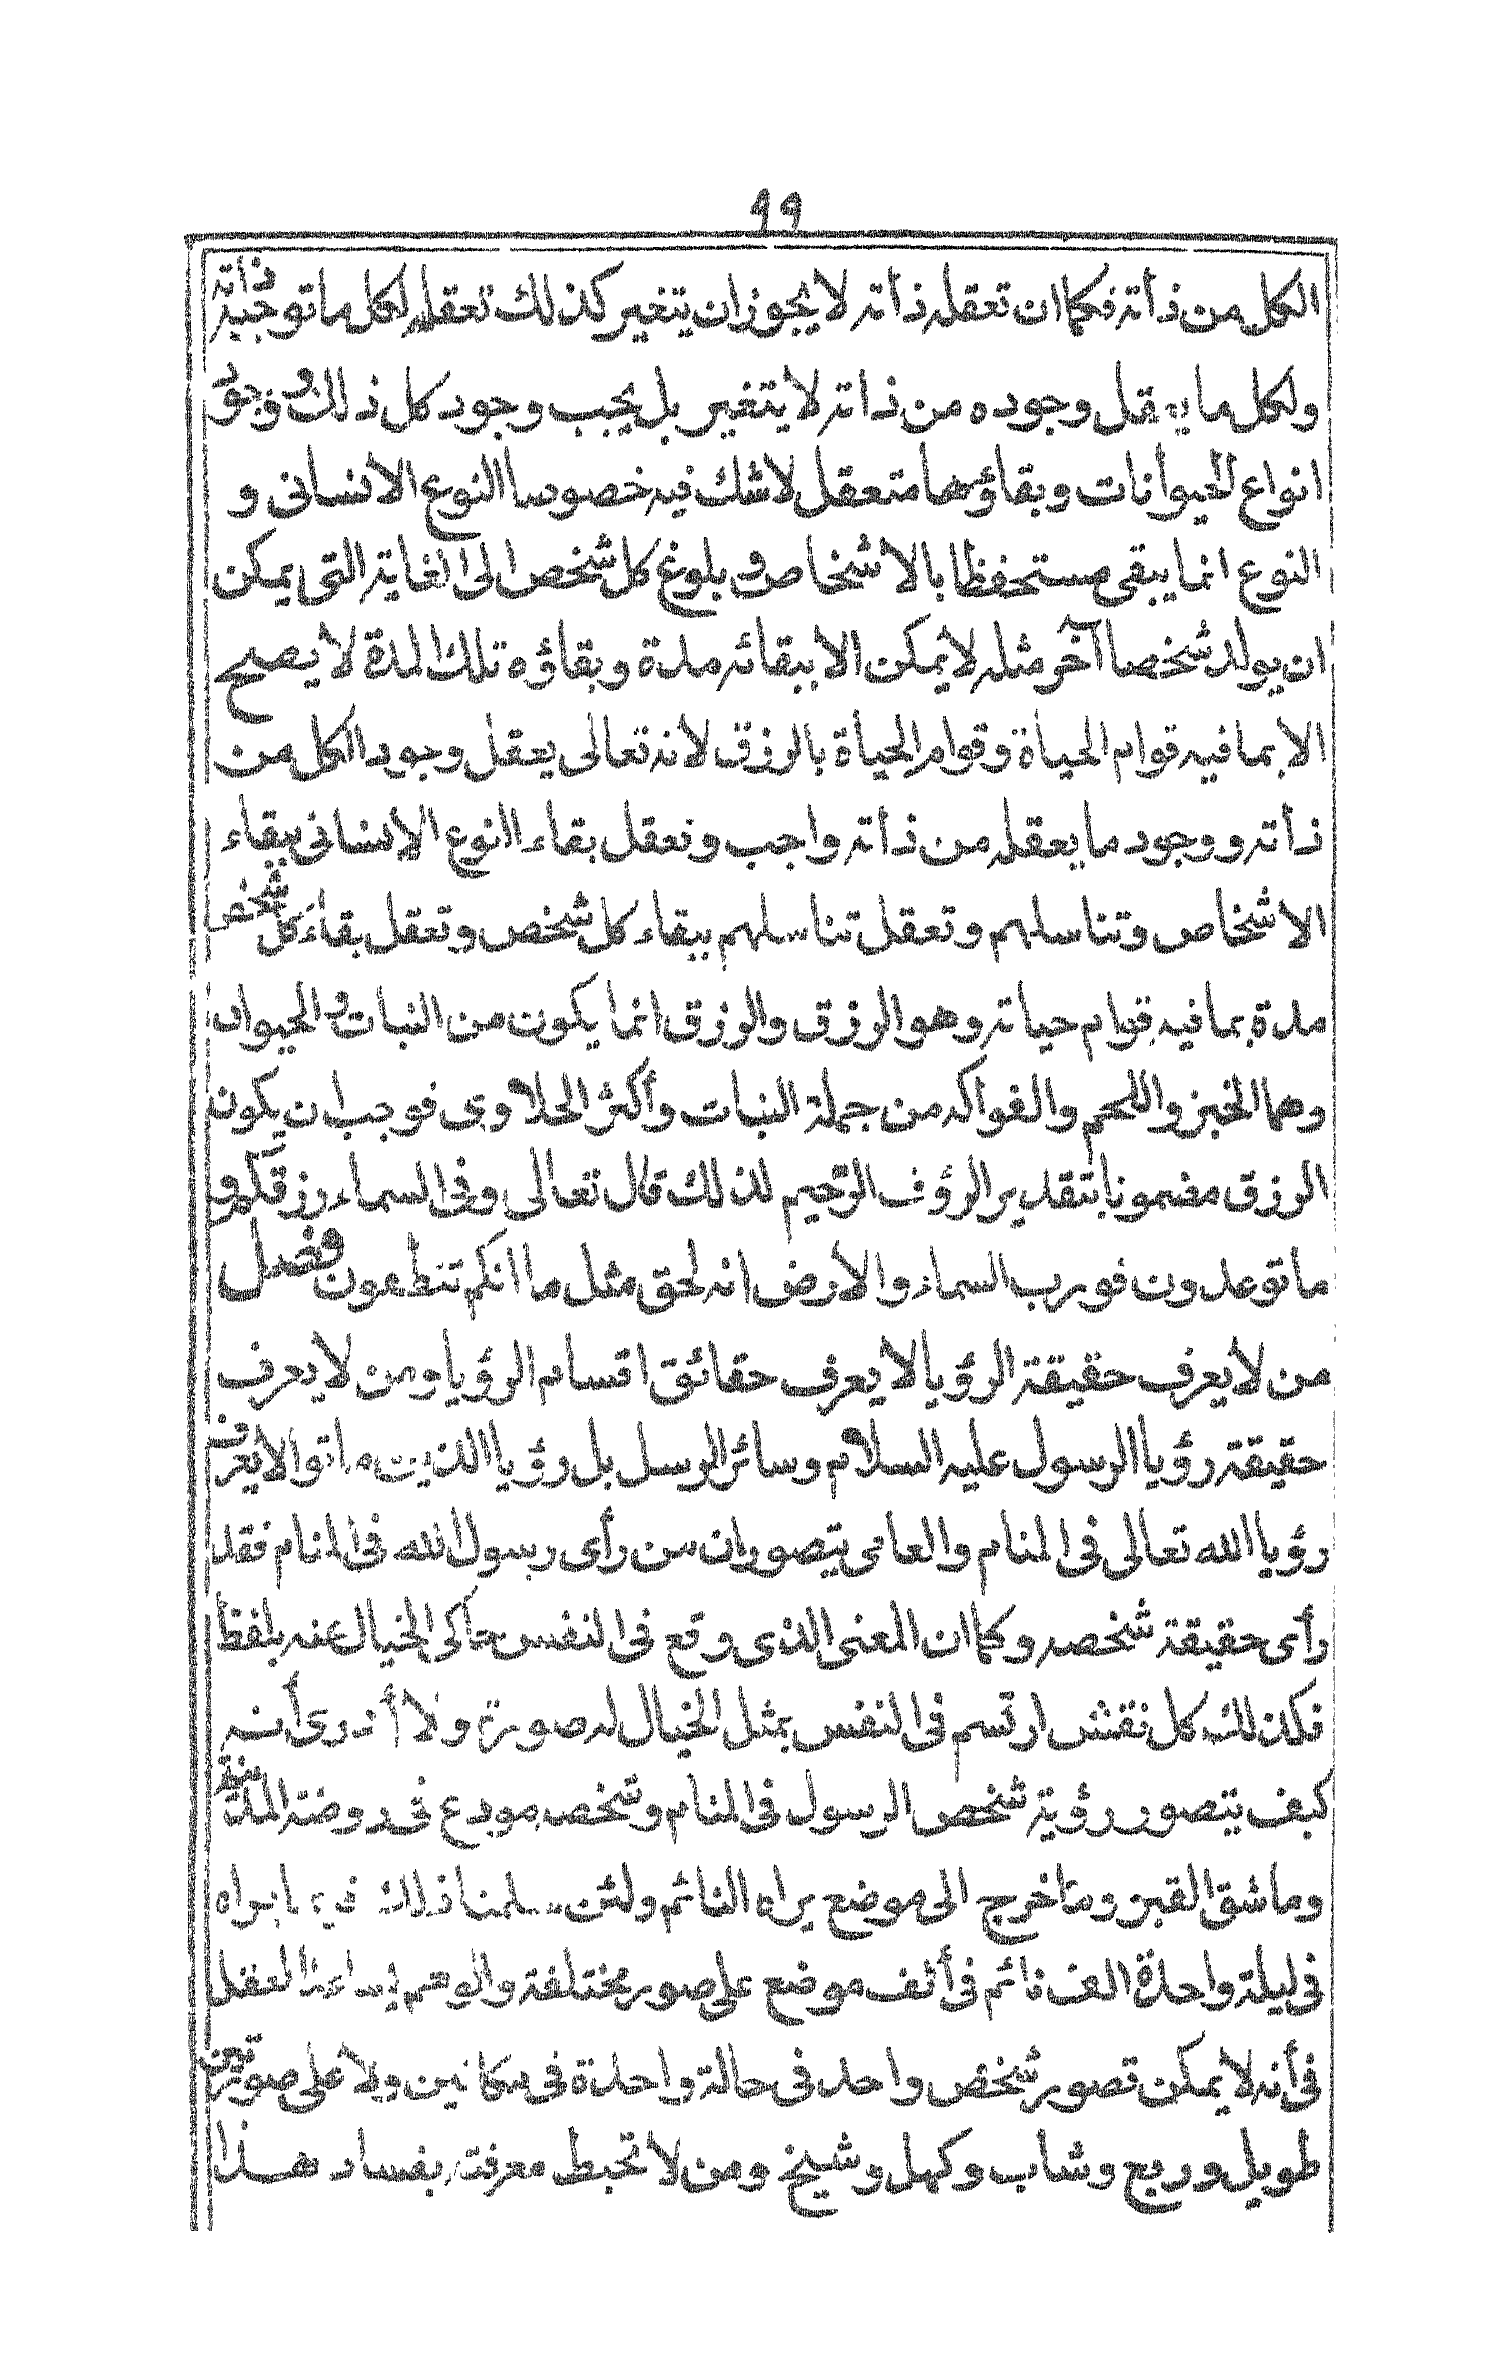 ٩٩
الكل من ذأته فكما ان تعقله ذأته لا يجوز ان يتغير كذلك تعقله لكل ما توجبه ذاته
ولكل ما يعقل وجوده من ذاته لا يتغير بل يجب وجود كل ذلك ووجود
انواع الحيوأنات وبقاؤها متعقل لا شك فيه خصوصا النوع الانسانى و
النوع انما يبقى مستحفظا بالاشخاص وبلوغ كل شخص الى الغاية التى يمكن
ان يولد شخصا آخر مثله لا يمكن الا ببقائه مدة وبقاؤه تلك المدة لا يصح
الا بما فيه قوام الحياة وقوام الحيأة بالرزق لانه تعالى يعقل وجود الكل من
ذأته ووجود ما يعقله من ذأته واجب وتعقل بقاء النوع الإنسانى ببقاء
الاشخاص وتناسلهم وتعقل تناسلهم ببقاء كل شخص وتعقل بقاء كل شخص
مدة بما فيه قوام حياته وهو الرزق والرزق انما يكون من النبات والحيوان
وهما الخبز واللحم والفواكه من جملة النبات وأكثر الحلاوى فوجب ان يكون
الرزق مضمونا بتقدير الرؤف الرّحيم لذلك قال تعالى وفى السماء رزقكم و
ما توعدون فورب السماء والارض انه لحق مثل ما انكم تنطعون فصل
من لا يعرف حقيقة الرؤيا لا يعرف حقائق اقسام الرؤيا ومن لا يعرف
حقيقة رؤيا الرسول عليه السلام وسائر الرسل بل رؤيا الذين ماتوا لا يعرف
رؤيا الله تعالى فى المنام والعامى يتصور ان من رأى رسول الله فى المنام فقد
رأى حقيقة شخصه وكما ان المعنى الذى وقع فى النفس حاكى الخيال عنه بلفظ
فكذلك كل نقش ارتسم فى النفس يمثل الخيال له صورة ولا أدرى أنه
كيف يتصور رؤية شخص الرسول فى المنام وشخصه مودع فى روضة المدينة
وما شق القبر وما خرج الى موضع يراه النائم ولئن سلمنا ذلك يراه
فى ليلة واحدة الف نائم فى ألف موضع على صور مختلفة والوهم يساعد العقل
فى أنه لا يمكن تصور شخص واحد فى حالة واحدة فى مكانين ولا على صورتين
طويل وربع وشاب وكهل وشيخ ومن لا تحيط معرفته بفساد هذا